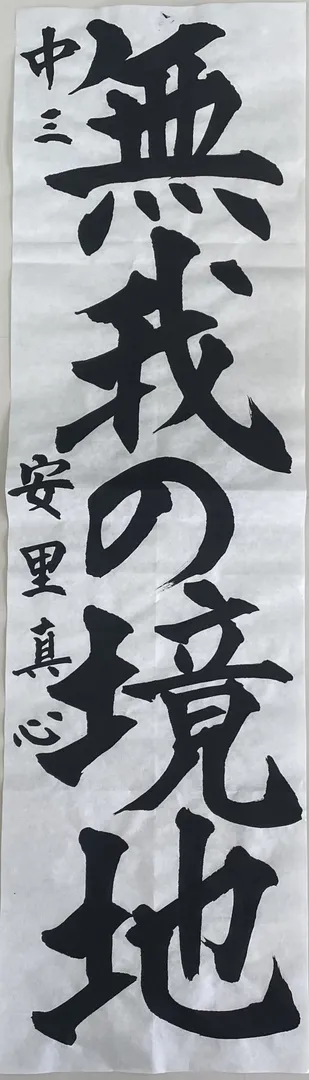 無我の境地
中三
安里真心